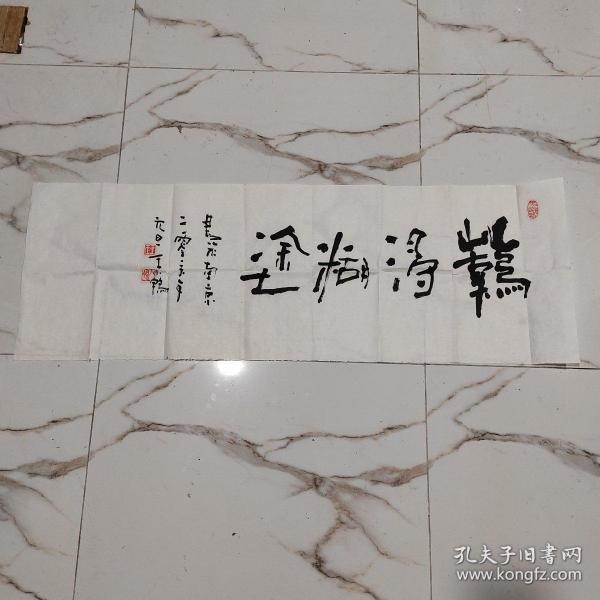 難得糊塗
書於南京
二零
元日
孔夫子旧書网
www.kongfz.com